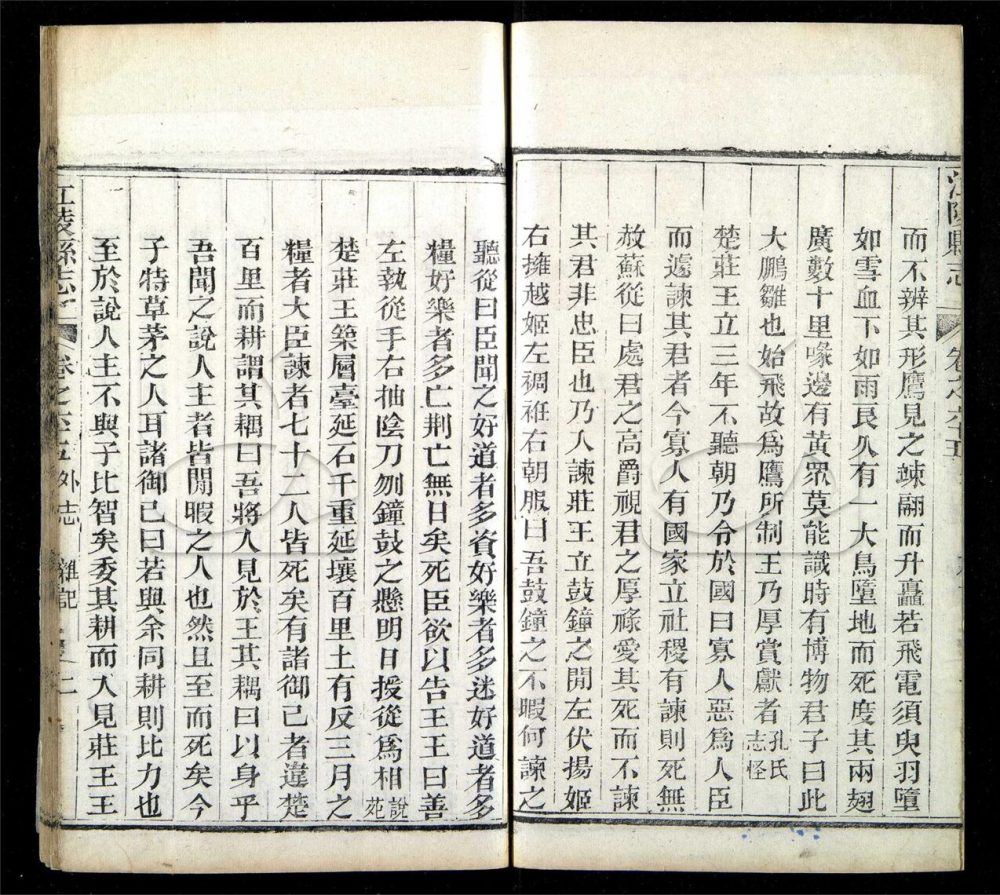 江陵縣志
卷之六十五
而不辨其形鷹見之竦翮而升矗若飛電須臾羽墮
如雪血下如雨良久有一大鳥墮地而死度其兩翅
廣數十里喙邊有黃眾莫能識時有博物君子曰此
大鵬雛也始飛故爲鷹所制王乃厚賞獻者孔氏志怪
楚莊王立三年不聽朝乃令於國曰寡人惡爲人臣
而遽諫其君者今寡人有國家立社稷有諫則死無
赦蘇從曰處君之高爵視君之厚祿愛其死而不諫
其君非忠臣也乃入諫莊王立鼓鐘之閒左伏揚姬
右擁越姬左裯袵右朝服曰吾鼓鐘之不暇何諫之
聽從曰臣聞之好道者多資好樂者多迷好道者多
糧好樂者多亡荆亡無日矣死臣欲以告王王曰善
左執從手右抽陰刀刎鐘鼓之懸明日授從爲相說苑
楚莊王築層臺延石千重延壤百里土有反三月之
糧者大臣諫者七十二人皆死矣有諸御己者違楚
百里而耕謂其耦曰吾將入見於王其耦曰以身乎
吾聞之說人主者皆閒暇之人也然且至而死矣今
子特草茅之人耳諸御己曰若與余同耕則比力也
至於說人主不與子比智矣委其耕而入見莊王王
江陵縣志
卷之六十五 外志 雜記 二